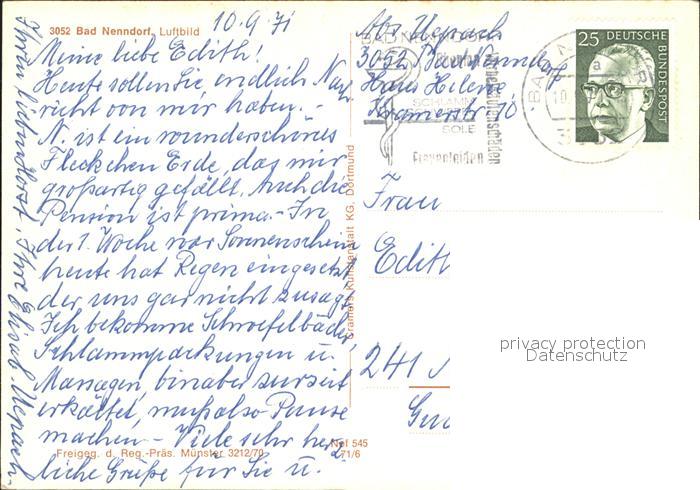 3052 Bad Nenndorf, Luftbild
10.9.71
Meine liebe Edith!
Heute sollen Sie endlich Nach-
richt von mir haben. -
N. ist ein wunderschönes
Fleckchen Erde, das mir
großartig gefällt. Auch die
Pension ist prima. - In
der 1. Woche war Sonnenschein
heute hat Regen eingesetzt
der uns gar nicht zusagt.
Ich bekomme Schwefelbäder,
Schlammpackungen u.
Massagen, bin aber zurzeit
erkältet, muß also Pause
machen - Viele sehr herz-
liche Grüße für Sie u.
Ihren lieben Horst, Ihre Elisab. Uepach
Freigeg. d. Reg.-Präs. Münster 3212/70
Nef 545
71/6
Cramers Kunstanstalt KG, Dortmund
Abs. Uepach
3052 Bad Nenndorf
Haus Helene,
Kramerstr. 10
SCHLAMM
SOLE
Frauenleiden
25 DEUTSCHE
BUNDESPOST
Frau
Edith
241
privacy protection
Datenschutz